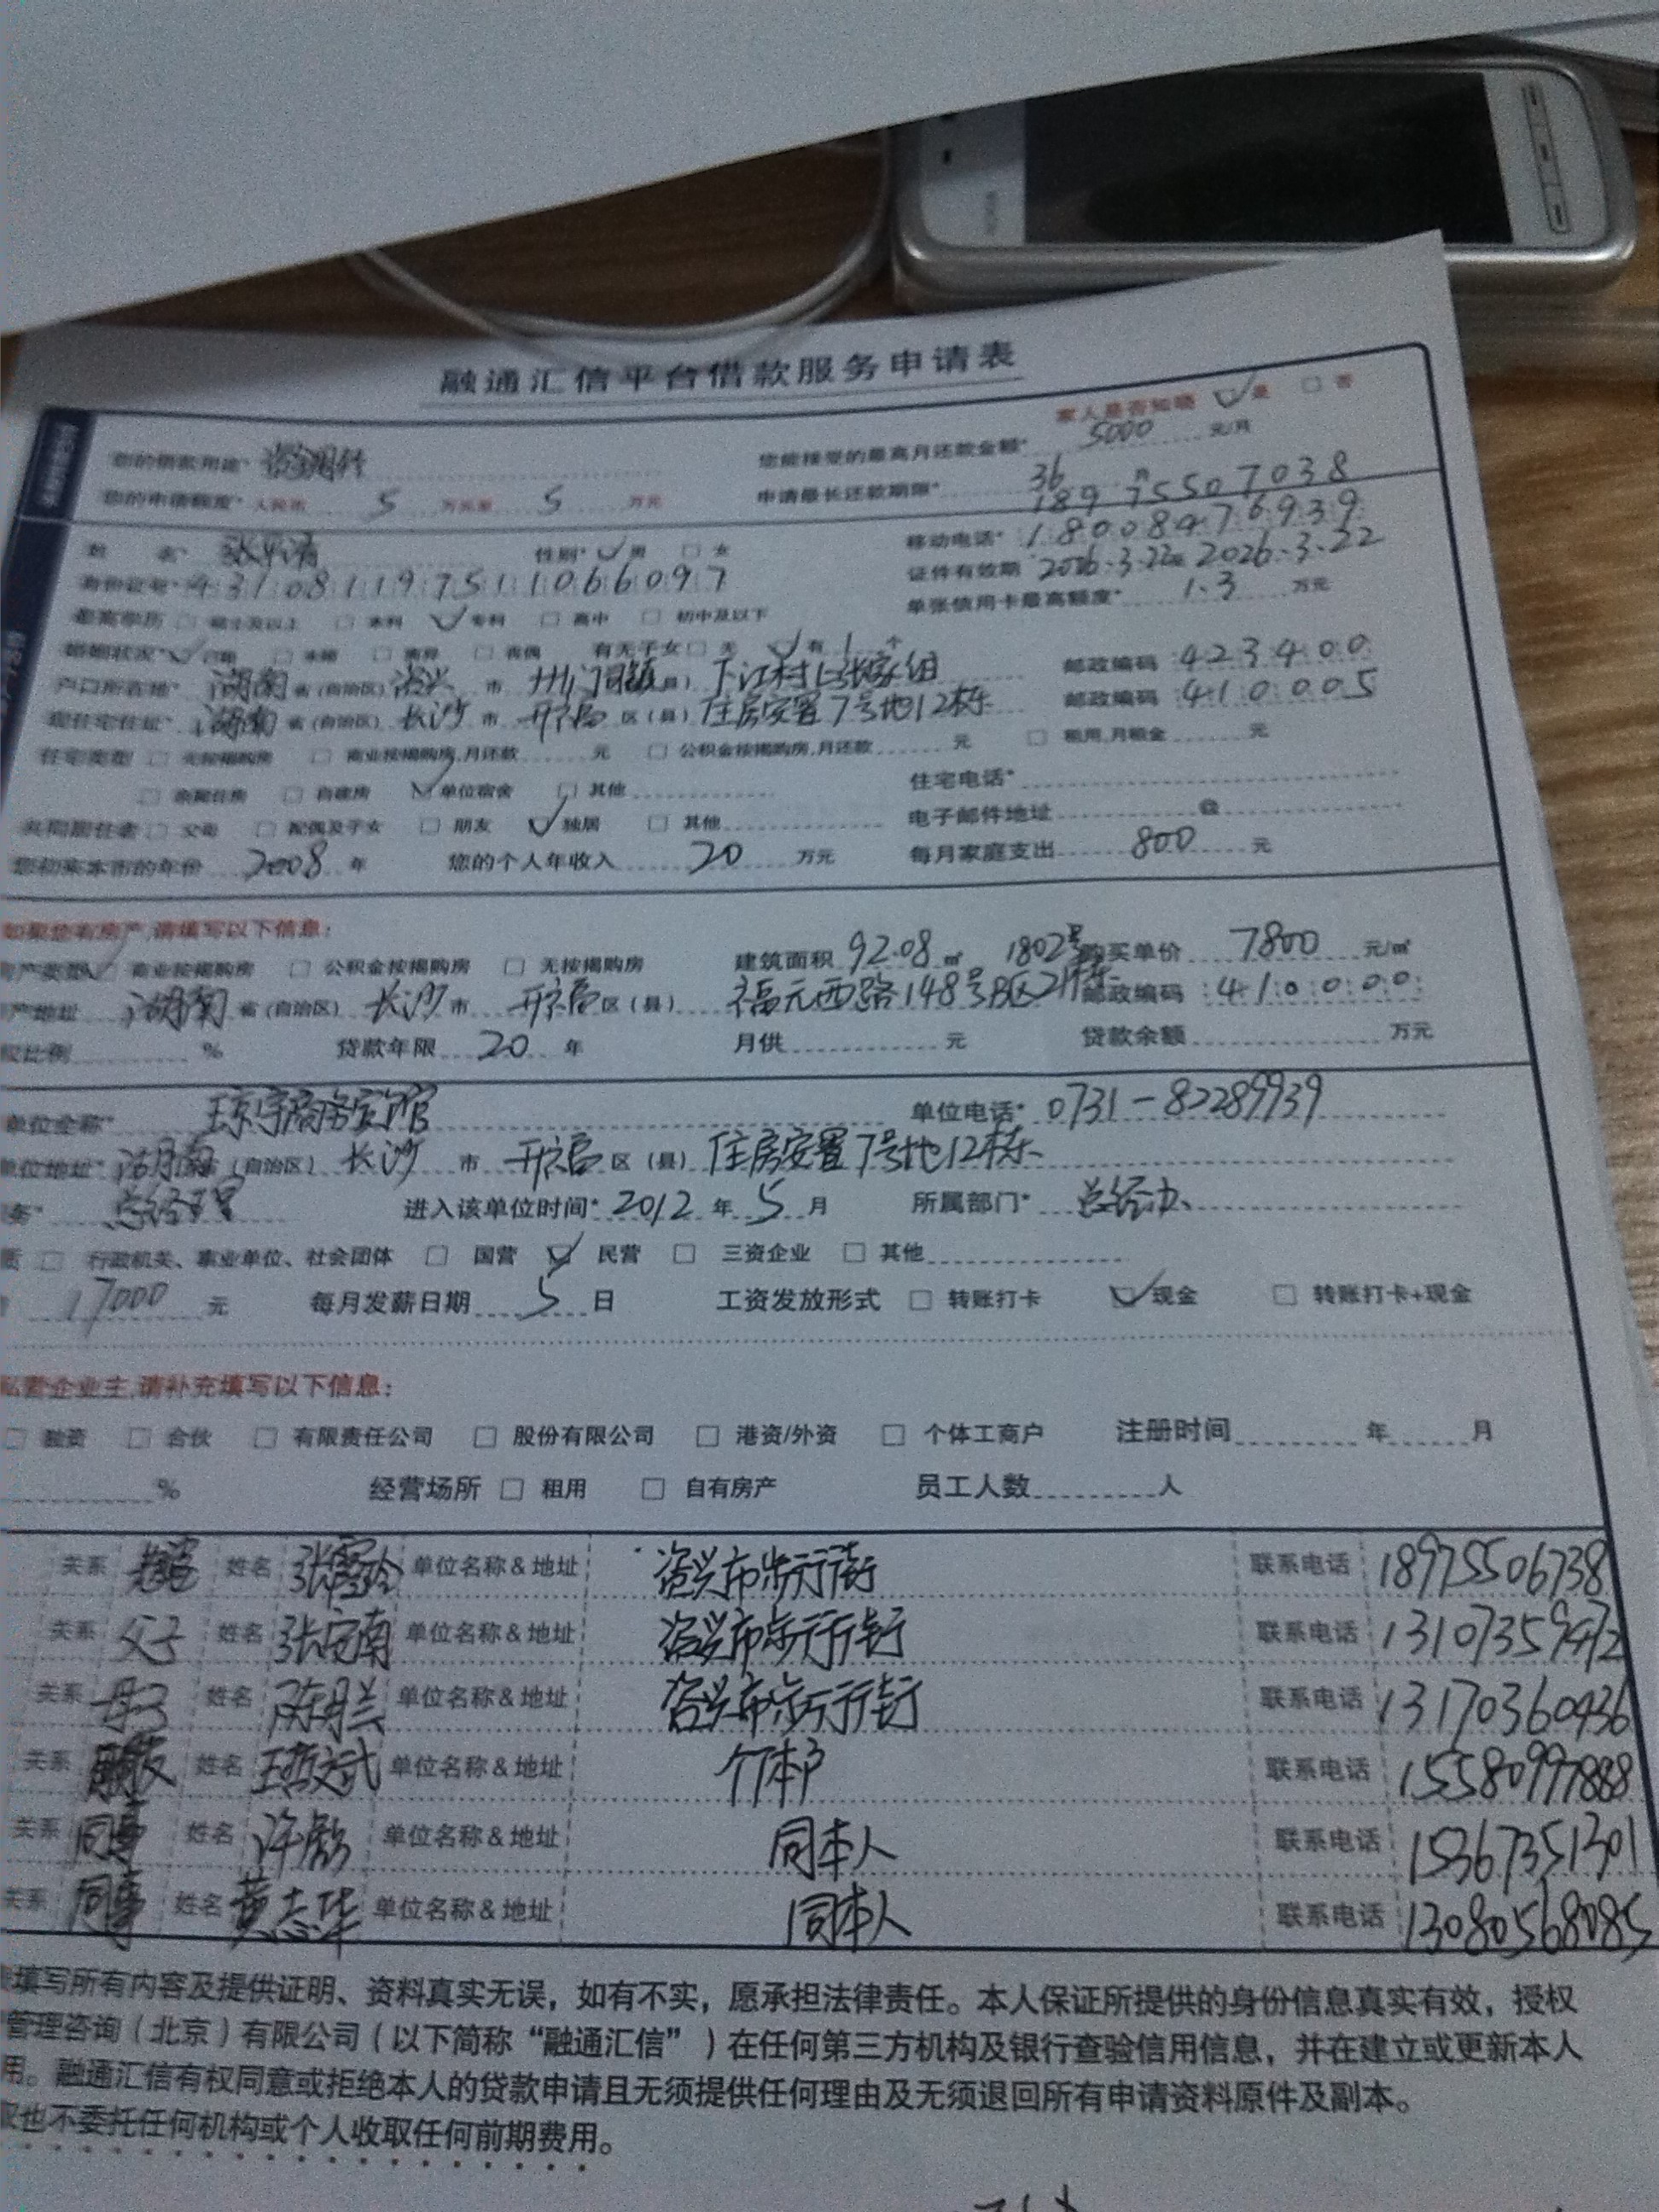 融通汇信平台借款服务申请表
家人是否知晓 是 否
您的借款用途* 资金周转 您能接受的最高月还款金额* 5000 元/月
您的申请额度* 人民币 5 万元至 5 万元 申请最长还款期限* 36 月
18975507038
姓 名* 性别* 男 女 移动电话* 18008476939
身份证号* 431081197511066097 证件有效期 2016.3.22至2026.3.22
最高学历 硕士及以上 本科 专科 高中 初中及以下 单张信用卡最高额度* 1.3 万元
婚姻状况* 已婚 未婚 离异 丧偶 有无子女 无 有 1 个
户口所在地* 湖南 省(自治区) 资兴 市 州门司镇 县) 下江村上张家组 邮政编码 423400
现住宅住址* 湖南 省(自治区) 长沙 市 开福 区(县) 住房安置7号地12栋 邮政编码 410005
住宅类型 无按揭购房 商业按揭购房,月还款 元 公积金按揭购房,月还款 元 租用,月租金 元
亲属住房 自建房 单位宿舍 其他 住宅电话*
共同居住者 父母 配偶及子女 朋友 独居 其他 电子邮件地址 @
您初来本市的年份 2008 年 您的个人年收入 20 万元 每月家庭支出 800 元
如果您有房产,请填写以下信息:
产类型 商业按揭购房 公积金按揭购房 无按揭购房 建筑面积 92.08 ㎡ 1802号 购买单价 7800 元/㎡
产地址 湖南 省(自治区) 长沙 市 开福 区(县) 福元西路148号B区21栋 邮政编码 410000
比例 % 贷款年限 20 年 月供 元 贷款余额 万元
单位全称* 琼宇商务宾馆 单位电话* 0731-82289939
单位地址* 湖南 省(自治区) 长沙 市 开福 区(县) 住房安置7号地12栋
务* 总经理 进入该单位时间* 2012 年 5 月 所属部门* 总经办
质 行政机关、事业单位、社会团体 国营 民营 三资企业 其他
17000 元 每月发薪日期 5 日 工资发放形式 转账打卡 现金 转账打卡+现金
私营企业主,请补充填写以下信息:
独资 合伙 有限责任公司 股份有限公司 港资/外资 个体工商户 注册时间 年 月
% 经营场所 租用 自有房产 员工人数 人
关系 姓名 张雪玲 单位名称&地址 资兴市步行街 联系电话 18975506738
关系 父子 姓名 张定南 单位名称&地址 资兴市步行街 联系电话 13107359472
关系 母子 姓名 陈月兰 单位名称&地址 资兴市步行街 联系电话 13170360436
关系 朋友 姓名 单位名称&地址 个体户 联系电话 15580997888
关系 同事 姓名 许彪 单位名称&地址 同本人 联系电话 15367351301
关系 同事 姓名 黄志华 单位名称&地址 同本人 联系电话 13080568085
填写所有内容及提供证明、资料真实无误，如有不实，愿承担法律责任。本人保证所提供的身份信息真实有效，授权
管理咨询（北京）有限公司（以下简称“融通汇信”）在任何第三方机构及银行查验信用信息，并在建立或更新本人
用。融通汇信有权同意或拒绝本人的贷款申请且无须提供任何理由及无须退回所有申请资料原件及副本。
也不委托任何机构或个人收取任何前期费用。